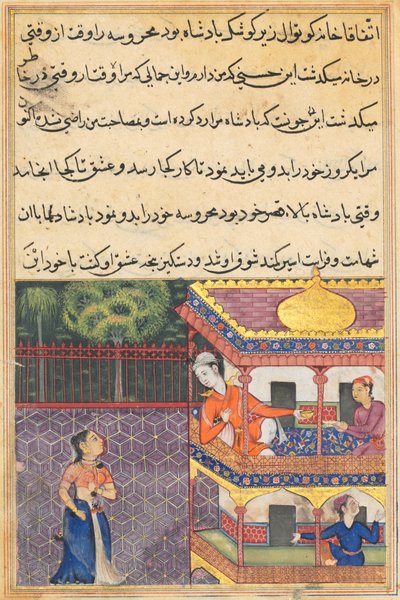 اتفاقا خانه کوتوال زیر کوشک بادشاه بود محروسه را وقت از وقتی
در خانه میگذشت این حسنی که من دارم و این جمالی که مرا وقتی در خاطر
میگذشت این چونست که بادشاه مرا رد کرده است و بمصاحبت من راضی نشده اکنون
مرا یکروز خود را بدو می باید نمود تا کار کجا رسد و عشق تا کجا انجامد
وقتی بادشاه بالاء قصر خود بود محروسه خود را بدو نمود بادشاه هما با ان
شهامت و فراست اسیر کمند شوق او شد و دستکیر پنجه عشق او کشت با خود این